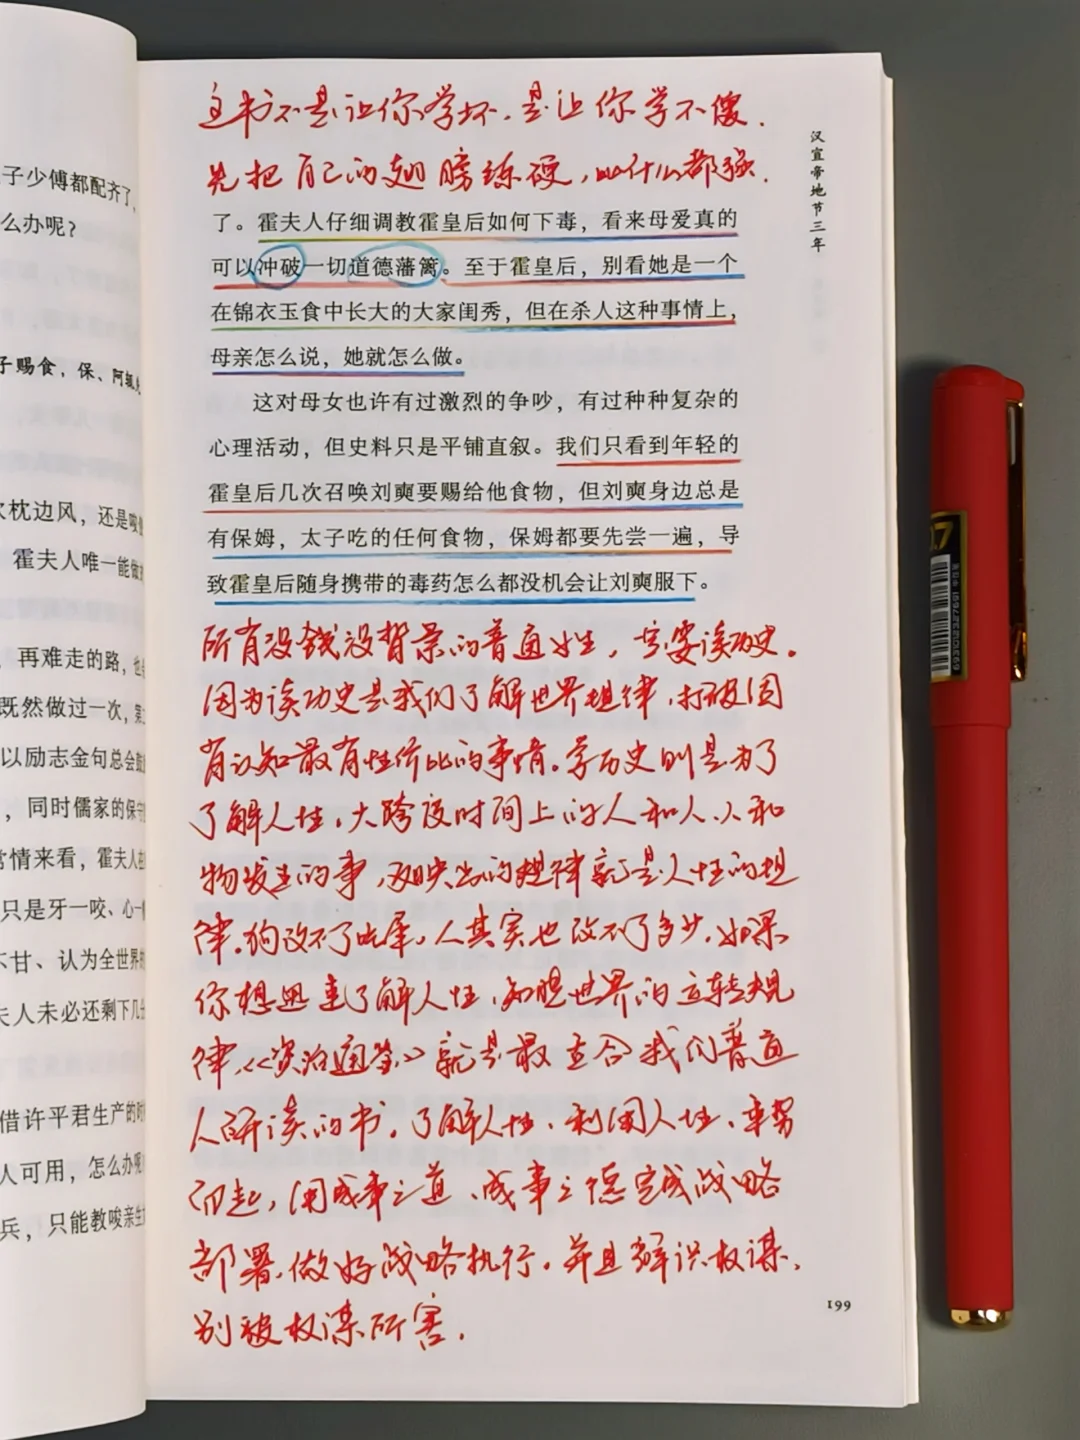 子少傅都配齐了、
么办呢？
子赐食，保、阿辄
枕边风，还是唆
霍夫人唯一能做
再难走的路，
既然做过一次，
以励志金句总会
，同时儒家的保守
常情来看，霍夫人
只是牙一咬、心一
不甘、认为全世界
夫人未必还剩下几
借许平君生产的时
人可用，怎么办呢
兵，只能教唆亲生
这书不是让你学坏，是让你学不傻．
先把自己的翅膀练硬，比什么都强．
了。霍夫人仔细调教霍皇后如何下毒，看来母爱真的
可以冲破一切道德藩篱。至于霍皇后，别看她是一个
在锦衣玉食中长大的大家闺秀，但在杀人这种事情上，
母亲怎么说，她就怎么做。
这对母女也许有过激烈的争吵，有过种种复杂的
心理活动，但史料只是平铺直叙。我们只看到年轻的
霍皇后几次召唤刘奭要赐给他食物，但刘奭身边总是
有保姆，太子吃的任何食物，保姆都要先尝一遍，导
致霍皇后随身携带的毒药怎么都没机会让刘奭服下。
所有没钱没背景的普通女生，一定要读历史。
因为读历史是我们了解世界规律，打破固
有认知最有性价比的事情。学历史则是为了
了解人性，大跨度时间上的人和人、人和
物发生的事，反映出的规律就是人性的规
律。狗改不了吃屎，人其实也改不了多少，如果
你想迅速了解人性，知晓世界的运转规
律，《资治通鉴》就是最适合我们普通
人研读的书。了解人性、利用人性、乘势
而起，用成事之道、成事之德完成战略
部署，做好战略执行。并且辨识权谋，
别被权谋所害．
汉宣帝地节三年
199
0.7
6930123276